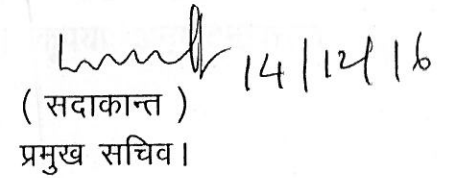 14/12/16
( सदाकान्त )
प्रमुख सचिव।